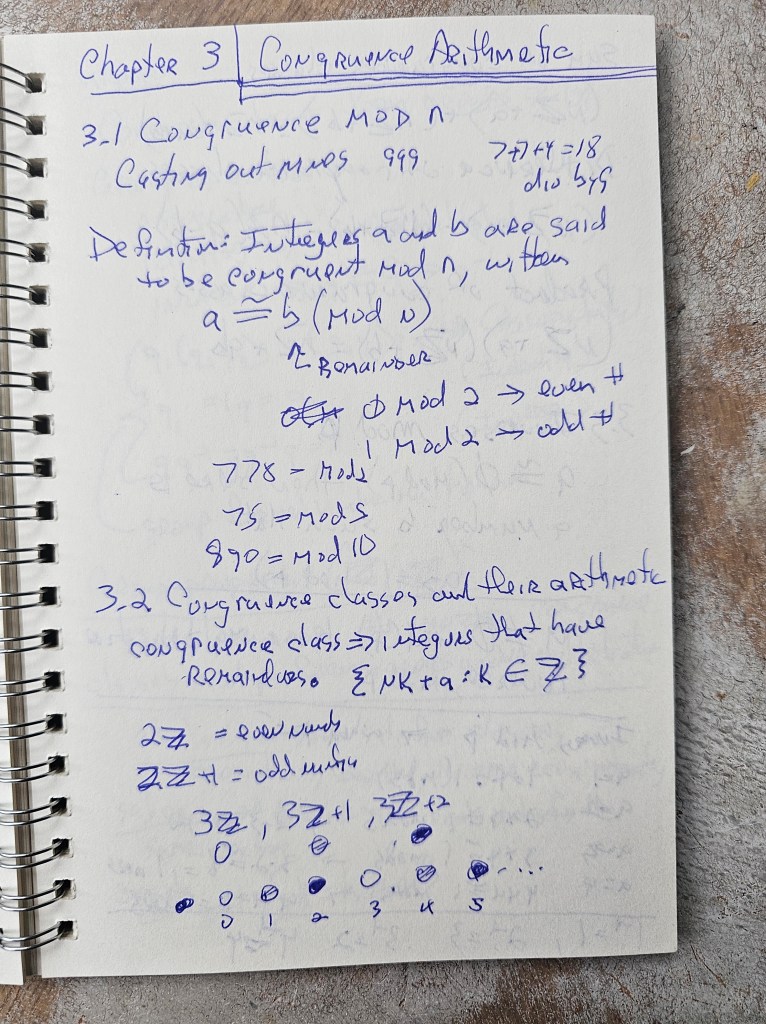 Chapter 3 | Congruence Arithmetic
3.1 Congruence MOD n
Casting out nines 999 7+7+4=18
div by 9
Definition: Integers a and b are said
to be congruent mod n, written
a ≅ b (mod n)
Remainder
0 mod 2 → even #
1 mod 2 → odd #
778 = mod2
75 = mod 5
890 = mod 10
3.2 Congruence classes and their arithmetic
congruence class ⇒ integers that have
Remainders. { nk + a : k ∈ ℤ }
2ℤ = even nums
2ℤ+1 = odd
3ℤ, 3ℤ+1, 3ℤ+2
...
0 1 2 3 4 5